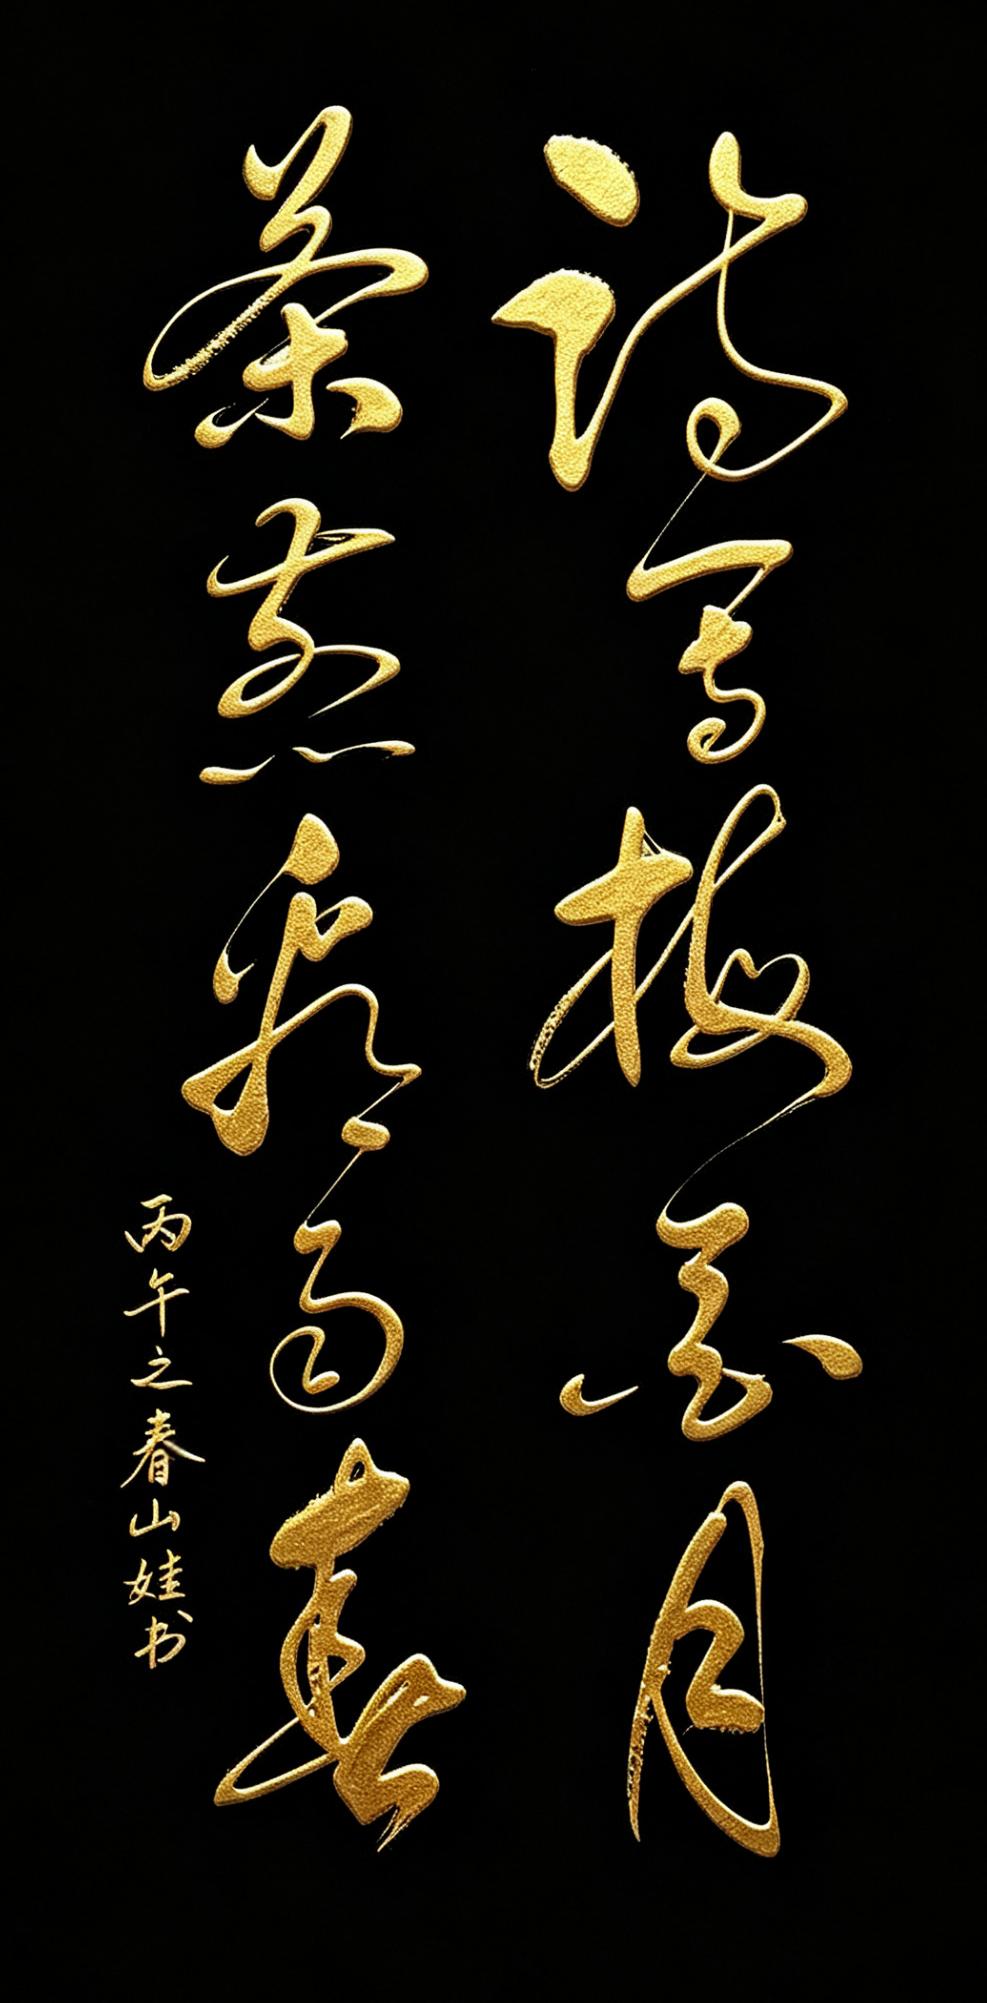 诗写梅花月
茶煎谷雨春
丙午之春山娃书